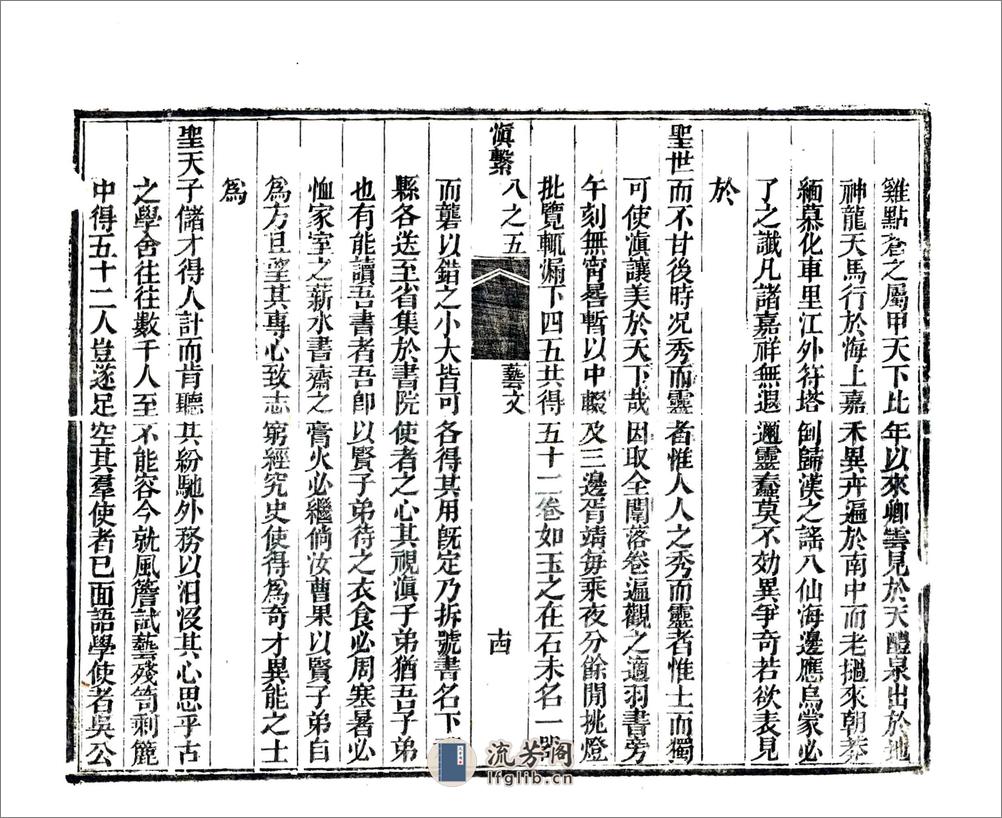 雞點蒼之屬甲天下比年以來卿雲見於天醴泉出於地
神龍天馬行於海上嘉禾異卉遍於南中而老撾來朝莽
緬慕化車里江外符塔倒歸漢之謠八仙海邊應烏蒙必
了之讖凡諸嘉祥無遐邇靈蠢莫不効異爭奇若欲表見
於
聖世而不甘後時况秀而靈者惟人人之秀而靈者惟士而獨
可使滇讓美於天下哉因取全闈落卷遍觀之適羽書旁
午刻無宵晷暫以中輟及三邊胥靖每乘夜分餘閒挑燈
批覽輒漏下四五共得五十二卷如玉之在石未名一器
滇繫 八之五 藝文 十四
而礱以錯之小大皆可各得其用旣定乃拆號書名下
縣各送至省集於書院使者之心其視滇子弟猶吾子弟
也有能讀吾書者吾卽以賢子弟待之衣食必周寒暑必
恤家室之薪水書齋之膏火必繼倘汝曹果以賢子弟自
爲方且望其專心致志窮經究史使得爲奇才異能之士
爲
聖天子儲才得人計而肯聽其紛馳外務以汨沒其心思乎古
之學舍往往數千人至不能容今就風簷試藝殘笥剩簏
中得五十二人豈遂足空其羣使者已面語學使者吳公
流芳阁
lfglib.cn